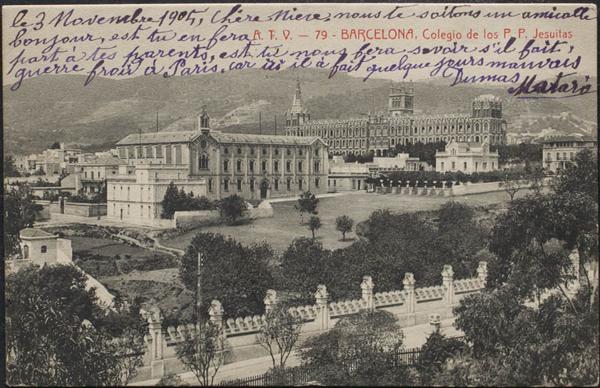 le 3 Novembre 1905, Chère Nièce, nous te saitons un amicalle
bonjour, est tu en fera
A. T. V. — 79 - BARCELONA. Colegio de los P. P. Jesuitas
part à tes parents, est tu nous fera savoir s'il fait,
guerre froi à Paris, car ici il à fait quelque jours mauvais
Dumas Mataró